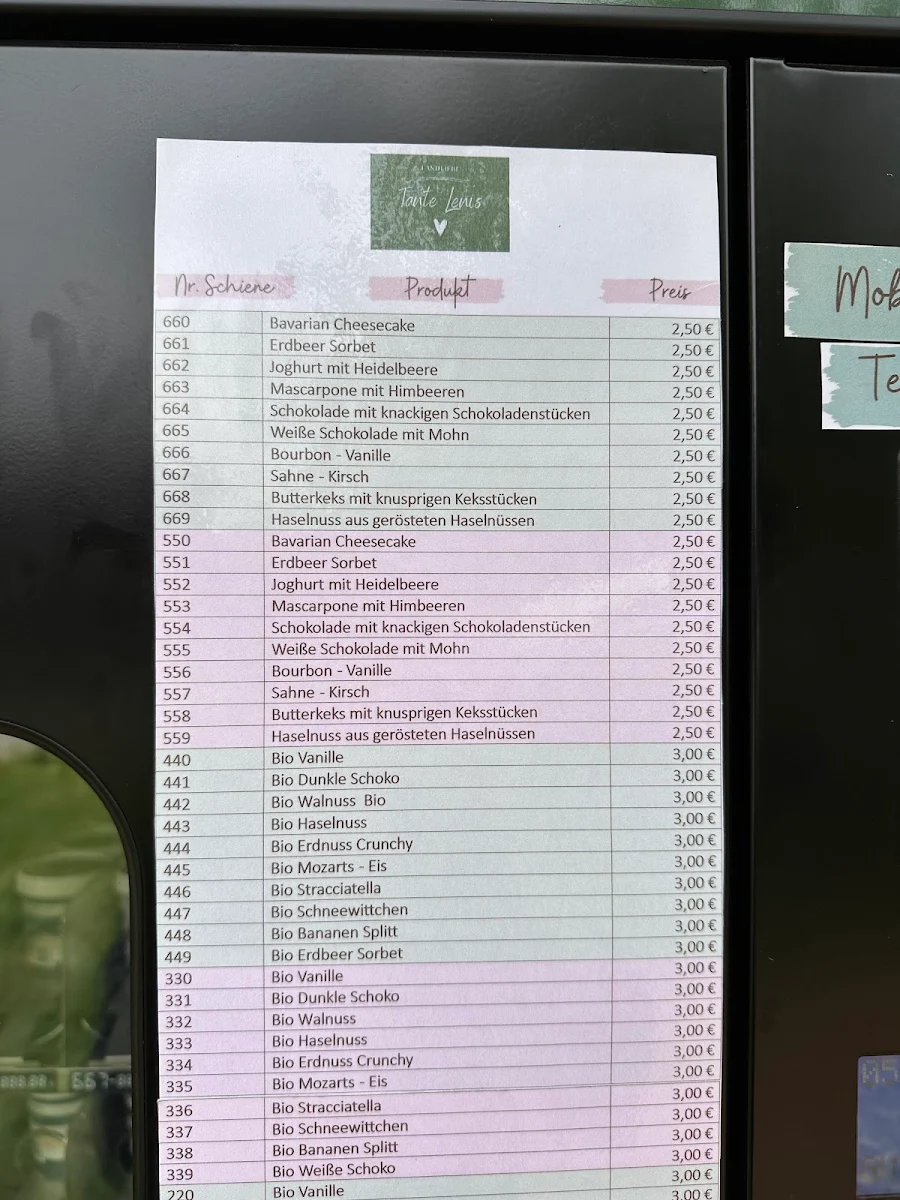 LANDLIEBE
Tante Lenis
Nr. Schiene Produkt Preis
Mob
Te
660 Bavarian Cheesecake 2,50 €
661 Erdbeer Sorbet 2,50 €
662 Joghurt mit Heidelbeere 2,50 €
663 Mascarpone mit Himbeeren 2,50 €
664 Schokolade mit knackigen Schokoladenstücken 2,50 €
665 Weiße Schokolade mit Mohn 2,50 €
666 Bourbon - Vanille 2,50 €
667 Sahne - Kirsch 2,50 €
668 Butterkeks mit knusprigen Keksstücken 2,50 €
669 Haselnuss aus gerösteten Haselnüssen 2,50 €
550 Bavarian Cheesecake 2,50 €
551 Erdbeer Sorbet 2,50 €
552 Joghurt mit Heidelbeere 2,50 €
553 Mascarpone mit Himbeeren 2,50 €
554 Schokolade mit knackigen Schokoladenstücken 2,50 €
555 Weiße Schokolade mit Mohn 2,50 €
556 Bourbon - Vanille 2,50 €
557 Sahne - Kirsch 2,50 €
558 Butterkeks mit knusprigen Keksstücken 2,50 €
559 Haselnuss aus gerösteten Haselnüssen 2,50 €
440 Bio Vanille 3,00 €
441 Bio Dunkle Schoko 3,00 €
442 Bio Walnuss Bio 3,00 €
443 Bio Haselnuss 3,00 €
444 Bio Erdnuss Crunchy 3,00 €
445 Bio Mozarts - Eis 3,00 €
446 Bio Stracciatella 3,00 €
447 Bio Schneewittchen 3,00 €
448 Bio Bananen Splitt 3,00 €
449 Bio Erdbeer Sorbet 3,00 €
330 Bio Vanille 3,00 €
331 Bio Dunkle Schoko 3,00 €
332 Bio Walnuss 3,00 €
333 Bio Haselnuss 3,00 €
334 Bio Erdnuss Crunchy 3,00 €
335 Bio Mozarts - Eis 3,00 €
336 Bio Stracciatella 3,00 €
337 Bio Schneewittchen 3,00 €
338 Bio Bananen Splitt 3,00 €
339 Bio Weiße Schoko 3,00 €
220 Bio Vanille 3,00 €